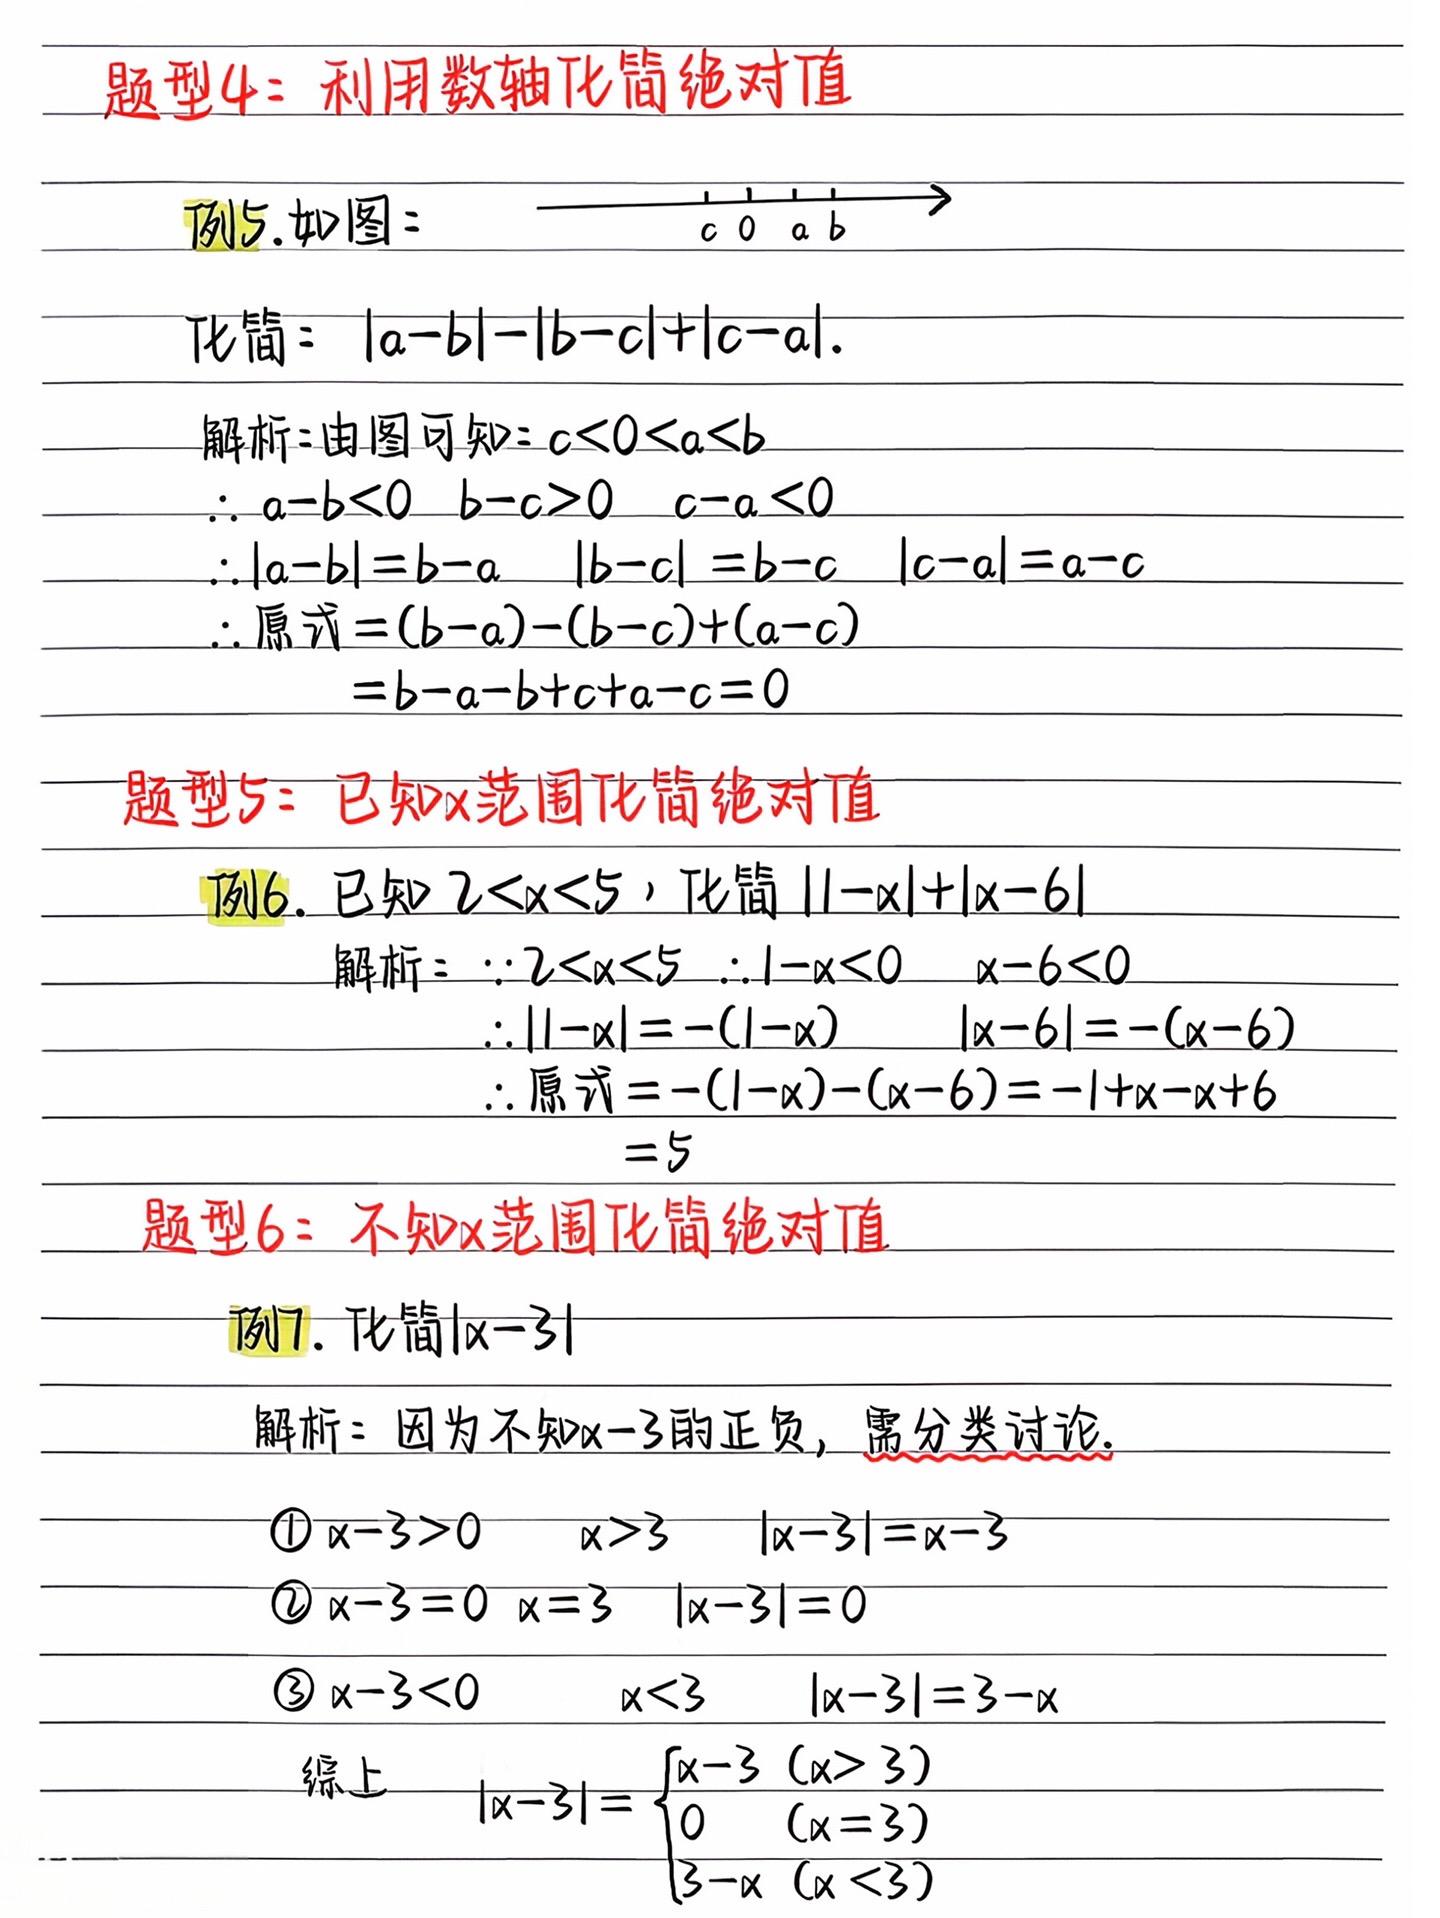 题型4：利用数轴化简绝对值
例5.如图：
c 0 a b
化简： |a-b|-|b-c|+|c-a|.
解析：由图可知：c<0<a<b
∴ a-b<0 b-c>0 c-a<0
∴|a-b|=b-a |b-c|=b-c |c-a|=a-c
∴原式=(b-a)-(b-c)+(a-c)
=b-a-b+c+a-c=0
题型5：已知x范围化简绝对值
例6. 已知 2<x<5，化简 |1-x|+|x-6|
解析：∵2<x<5 ∴1-x<0 x-6<0
∴|1-x|=-(1-x) |x-6|=-(x-6)
∴原式=-(1-x)-(x-6)=-1+x-x+6
=5
题型6：不知x范围化简绝对值
例7. 化简|x-3|
解析：因为不知x-3的正负，需分类讨论.
① x-3>0 x>3 |x-3|=x-3
② x-3=0 x=3 |x-3|=0
③ x-3<0 x<3 |x-3|=3-x
综上 |x-3|={x-3 (x>3)
0 (x=3)
3-x (x<3)